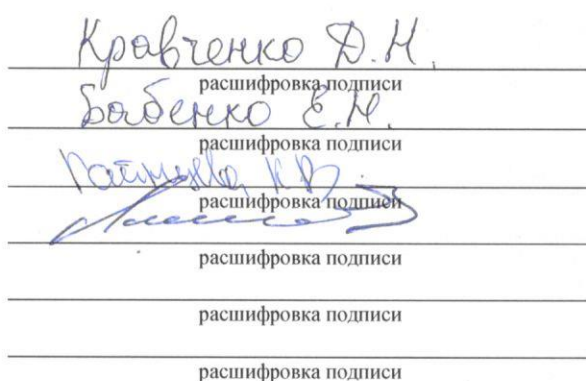 Кравченко Д.Н.
расшифровка подписи
Бабенко Е.Н.
расшифровка подписи
К.В.
расшифровка подписи
расшифровка подписи
расшифровка подписи
расшифровка подписи